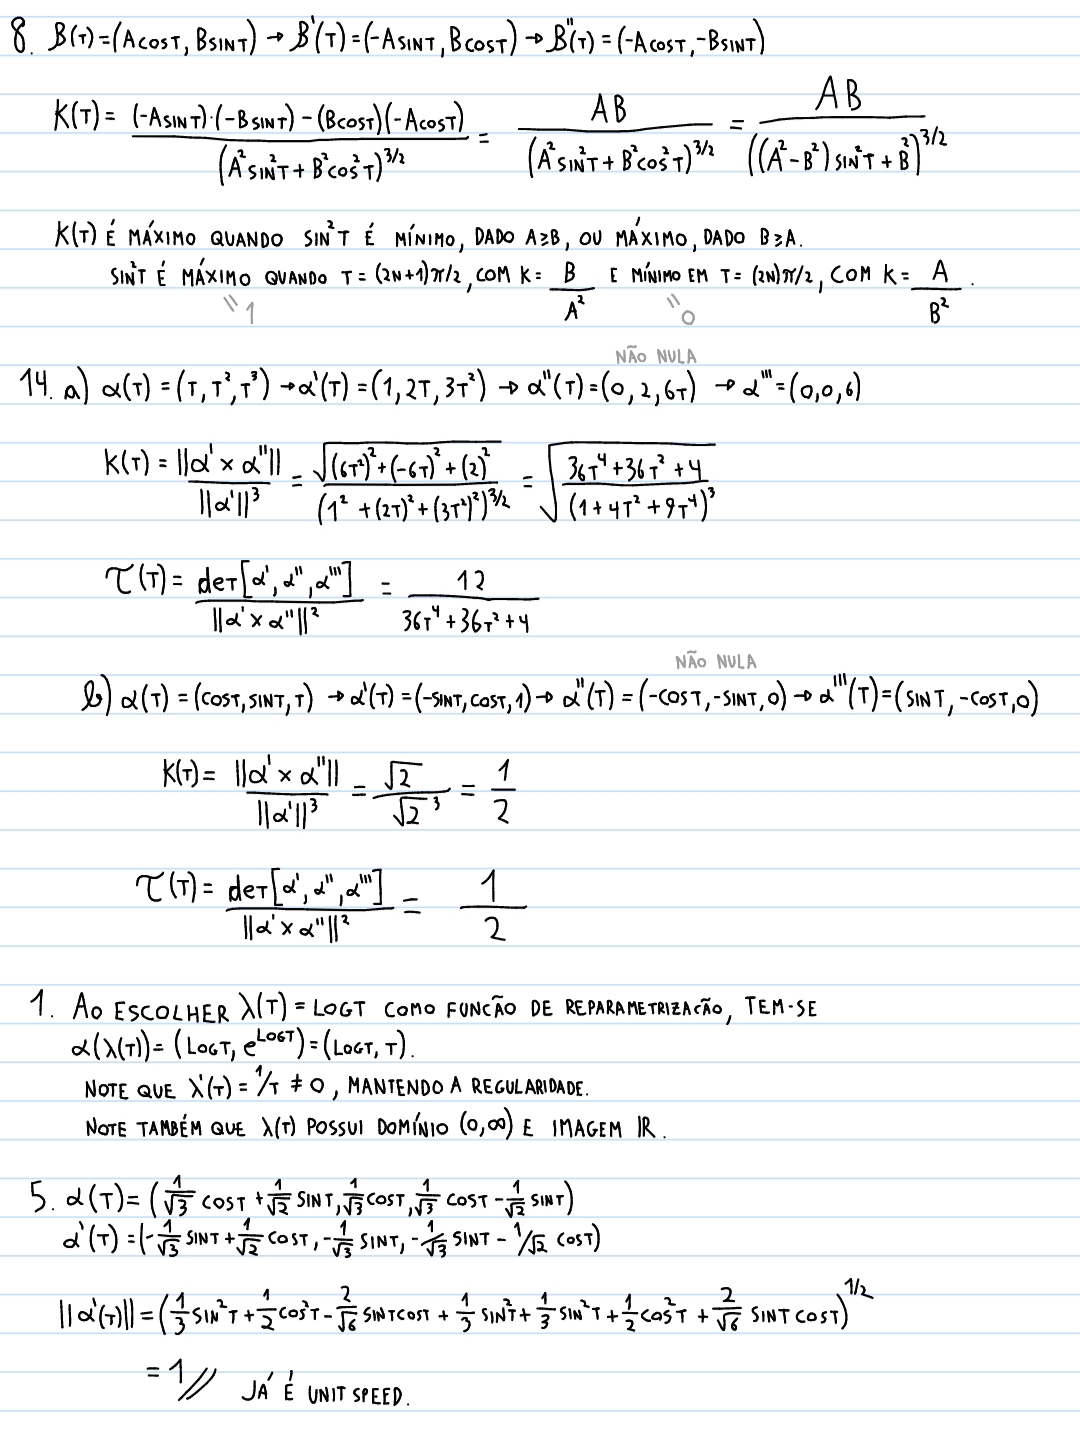 8. β(T)=(A COST, B SINT) → β'(T)=(-A SINT, B COST) → β''(T)=(-A COST, -B SINT)
K(T) = (-A SINT)·(-B SINT) - (B COST)(-A COST) / (A² SIN²T + B² COS²T)^3/2 = AB / (A² SIN²T + B² COS²T)^3/2 = AB / ((A²-B²) SIN²T + B²)^3/2
K(T) É MÁXIMO QUANDO SIN²T É MÍNIMO, DADO A≥B, OU MÁXIMO, DADO B≥A.
SIN²T É MÁXIMO QUANDO T = (2N+1)π/2, COM K = B/A² E MÍNIMO EM T = (2N)π/2, COM K = A/B².
"1 "0
NÃO NULA
14. a) α(T) = (T, T², T³) → α'(T) = (1, 2T, 3T²) → α''(T) = (0, 2, 6T) → α''' = (0,0,6)
K(T) = ||α' × α''|| / ||α'||³ = √((6T²)² + (-6T)² + (2)²) / (1² + (2T)² + (3T²)²)^3/2 = √(36T⁴ + 36T² + 4 / (1 + 4T² + 9T⁴)³)
τ(T) = deT[α', α'', α'''] / ||α' × α''||² = 12 / 36T⁴ + 36T² + 4
NÃO NULA
b) α(T) = (COST, SINT, T) → α'(T) = (-SINT, COST, 1) → α''(T) = (-COST, -SINT, 0) → α'''(T) = (SINT, -COST, 0)
K(T) = ||α' × α''|| / ||α'||³ = √2 / √2³ = 1/2
τ(T) = deT[α', α'', α'''] / ||α' × α''||² = 1/2
1. AO ESCOLHER λ(T) = LOGT COMO FUNCÃO DE REPARAMETRIZACÃO, TEM-SE
α(λ(T)) = (LOGT, e^LOGT) = (LOGT, T).
NOTE QUE λ'(T) = 1/T ≠ 0, MANTENDO A REGULARIDADE.
NOTE TAMBÉM QUE λ(T) POSSUI DOMÍNIO (0,∞) E IMAGEM IR.
5. α(T) = (1/√3 COST + 1/√2 SINT, 1/√3 COST, 1/√3 COST - 1/√2 SINT)
α'(T) = (-1/√3 SINT + 1/√2 COST, -1/√3 SINT, -1/√3 SINT - 1/√2 COST)
||α'(T)|| = (1/3 SIN²T + 1/2 COS²T - 2/√6 SINT COST + 1/3 SIN²T + 1/3 SIN²T + 1/2 COS²T + 2/√6 SINT COST)^1/2
= 1// JÁ É UNIT SPEED.